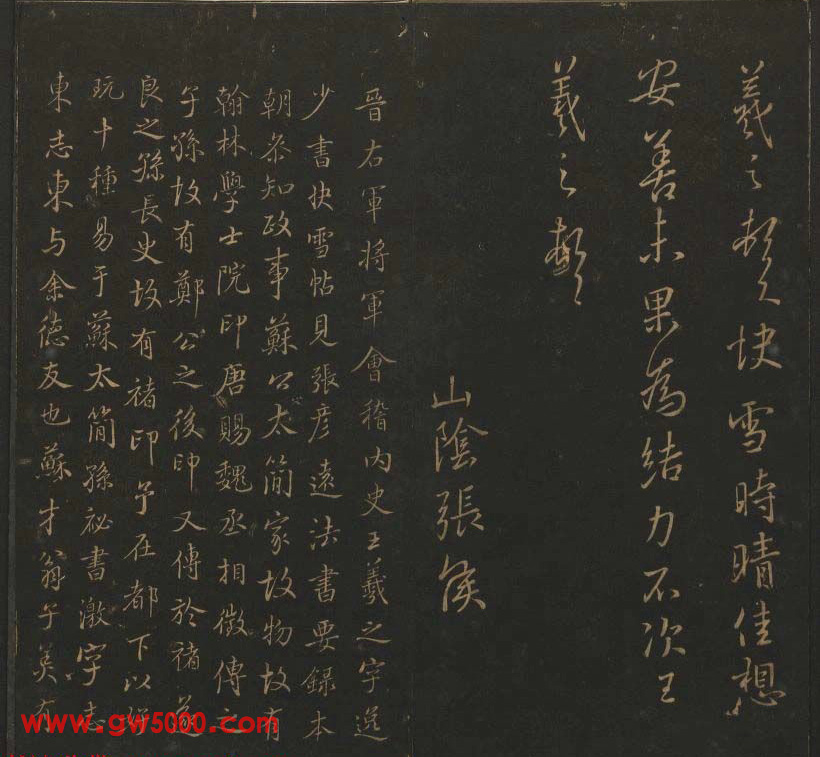 羲之頓首快雪時晴佳想
安善未果為結力不次王
羲之頓首
山陰張侯
晉右軍將軍會稽內史王羲之字逸
少書快雪帖見張彥遠法書要錄本
朝叅知政事蘇公太簡家故物故有
翰林學士院印唐賜魏丞相徵傳之
子孫故有鄭公之後印又傳於褚遂
良之孫長史故有褚印予在都下以
玩十種易于蘇太簡孫祕書激字志
東志東与余德友也蘇才翁子美有
www.gw5000.com